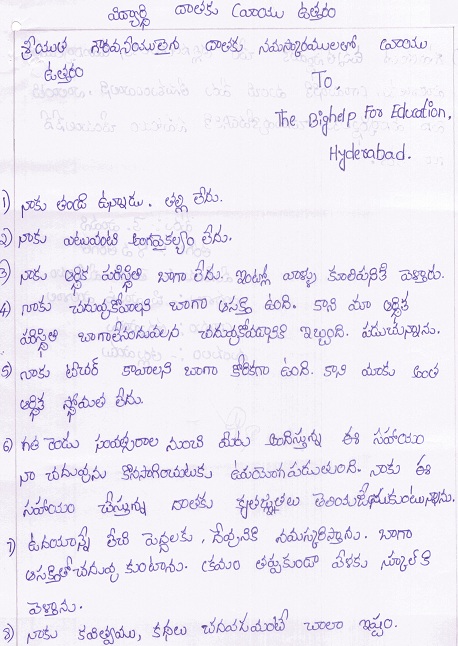 విద్యార్థి దాతకు వ్రాయు ఉత్తరం
శ్రీయుత గౌరవనీయులైన దాతకు నమస్కారములతో వ్రాయు
ఉత్తరం
To,
The Bighelp For Education,
Hyderabad.
1) నాకు తండ్రి ఉన్నాడు. తల్లి లేదు.
2) నాకు ఎటువంటి అంగవైకల్యం లేదు.
3) నాకు ఆర్థిక పరిస్థితి బాగా లేదు. ఇంట్లో వాళ్ళు కూలిపనికి వెళ్తారు.
4) నాకు చదువుకోవాలని బాగా ఆసక్తి ఉంది. కాని మా ఆర్థిక
పరిస్థితి బాగాలేనందువలన చదువుకోవడానికి ఇబ్బంది. పడుచున్నాను.
5) నాకు టీచర్ కావాలని బాగా కోరికగా ఉంది. కాని మాకు అంత
ఆర్థిక స్తోమత లేదు.
6) గత రెండు సంవత్సరాల నుంచి మీరు అందిస్తున్న ఈ సహాయం
నా చదువును కొనసాగించుటకు ఉపయోగపడుతుంది. నాకు ఈ
సహాయం చేస్తున్న దాతకు కృతజ్ఞతలు తెలియజేసుకుంటున్నాను.
7) ఉదయాన్నే లేచి పెద్దలకు, దేవునికి నమస్కరిస్తాను. బాగా
ఆసక్తితో చదువు కుంటాను. క్రమం తప్పకుండా వేళకు స్కూల్ కి
వెళ్తాను.
8) నాకు కవిత్వము, కథలు చదవడమంటే చాలా ఇష్టం.